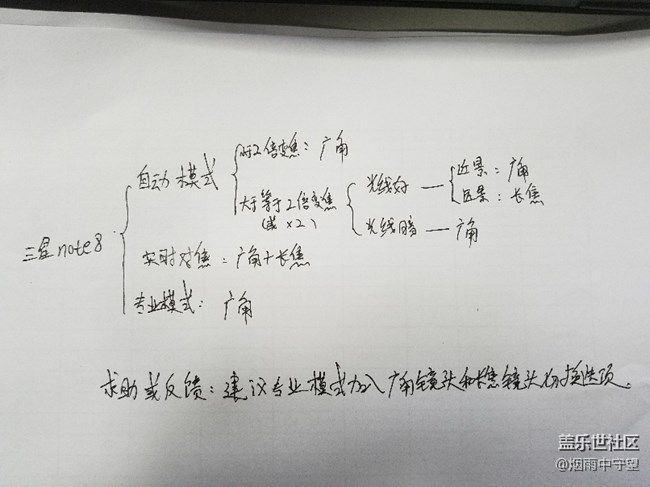 三星note8
自动模式
小于2倍变焦：广角
大于等于2倍变焦
(或×2)
光线好 — 近景：广角
远景：长焦
光线暗 — 广角
实时对焦：广角+长焦
专业模式：广角
求助或反馈：建议专业模式加入广角镜头和长焦镜头切换选项.
盖乐世社区
@烟雨中守望